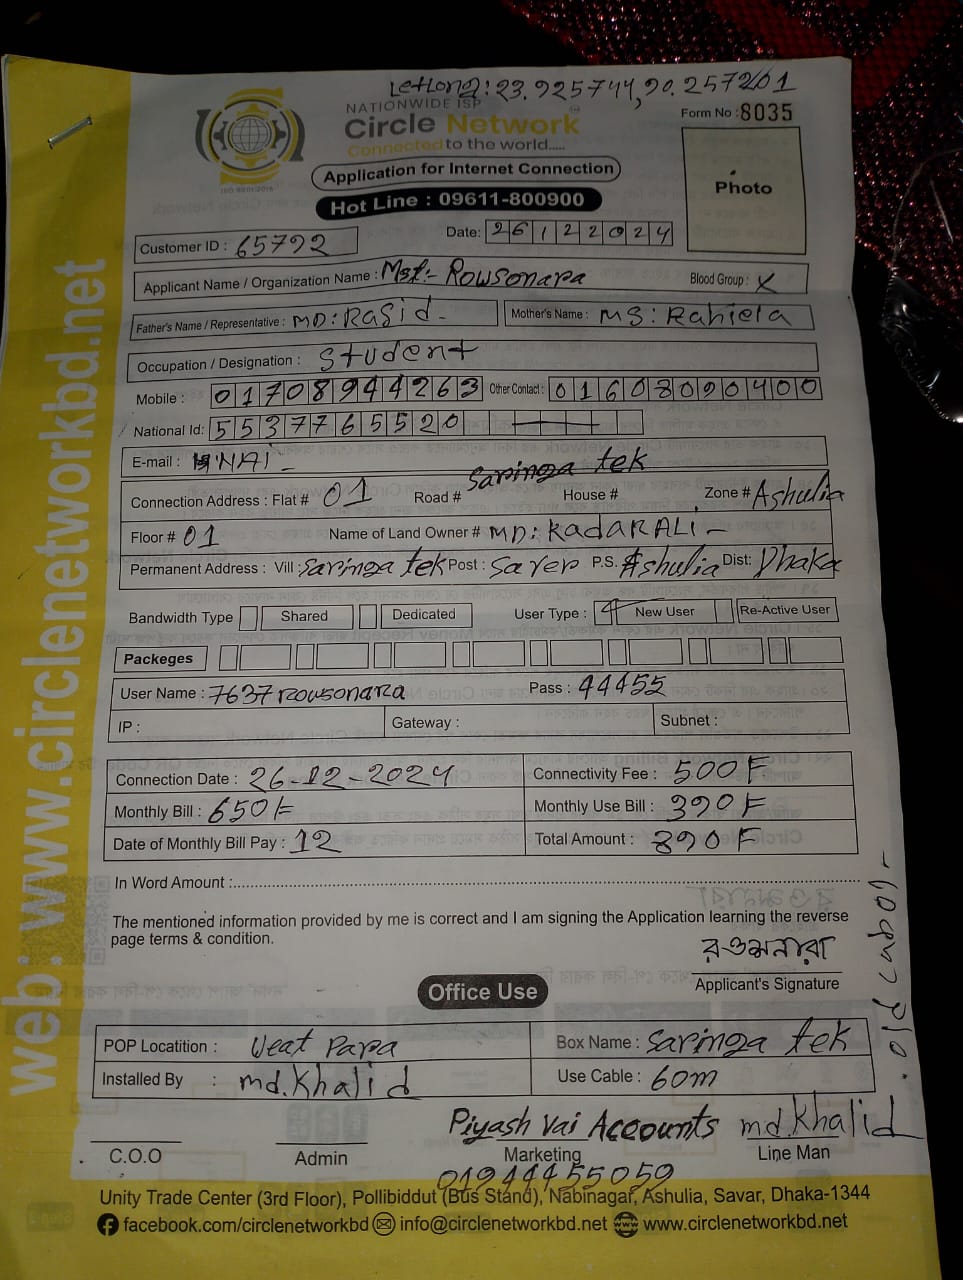 Letlong: 23.925744, 90.257201
NATIONWIDE ISP
Circle Network
Connected to the world.....
ISO 9001:2015
Form No : 8035
Photo
Application for Internet Connection
Hot Line : 09611-800900
Customer ID : 65792
Date: 26 12 2024
Applicant Name / Organization Name : Mst:- Rowsonara
Blood Group : X
Father's Name / Representative : MD: Rasid -
Mother's Name : MS: Rahiela
Occupation / Designation : Student
Mobile : 01708944263 Other Contact : 01608090400
National Id: 5537765520
E-mail : NAI -
Connection Address : Flat # 01 Road # Saringa tek House # Zone # Ashulia
Floor # 01 Name of Land Owner # MD: KadarALi -
Permanent Address : Vill : Saringa tek Post : Saver P.S. Ashulia Dist: Dhaka
Bandwidth Type Shared Dedicated User Type : New User Re-Active User
Packeges
User Name : 7637rowsonara Pass : 44455
IP : Gateway : Subnet :
Connection Date : 26-12-2024 Connectivity Fee : 500F
Monthly Bill : 650F Monthly Use Bill : 390F
Date of Monthly Bill Pay : 12 Total Amount : 890F
In Word Amount :
The mentioned information provided by me is correct and I am signing the Application learning the reverse
page terms & condition.
রওমনারা
Applicant's Signature
Office Use
POP Locatition : Weat Para Box Name : Saringa tek
Installed By : md.Khalid Use Cable : 60m
Piyash Vai Accounts md.Khalid
C.O.O Admin Marketing Line Man
01944455059
Unity Trade Center (3rd Floor), Pollibiddut (Bus Stand), Nabinagar, Ashulia, Savar, Dhaka-1344
facebook.com/circlenetworkbd info@circlenetworkbd.net www.circlenetworkbd.net
web: www.circlenetworkbd.net